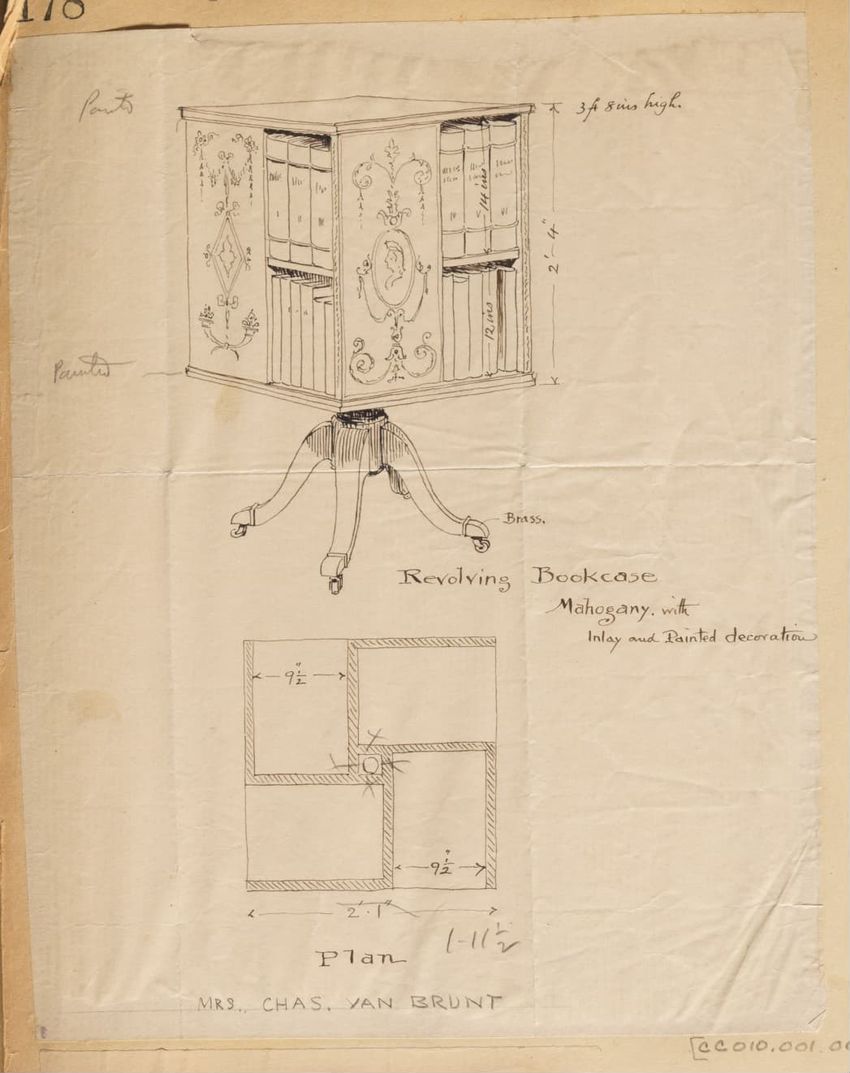 178
3 ft 8 ins high.
14 ins
2'-4"
12 ins
Painted
Brass.
Revolving Bookcase
Mahogany. with
Inlay and Painted decoration
9½"
9½"
2'.1"
1-11½
Plan
MRS. CHAS. VAN BRUNT
[CC010.001.00